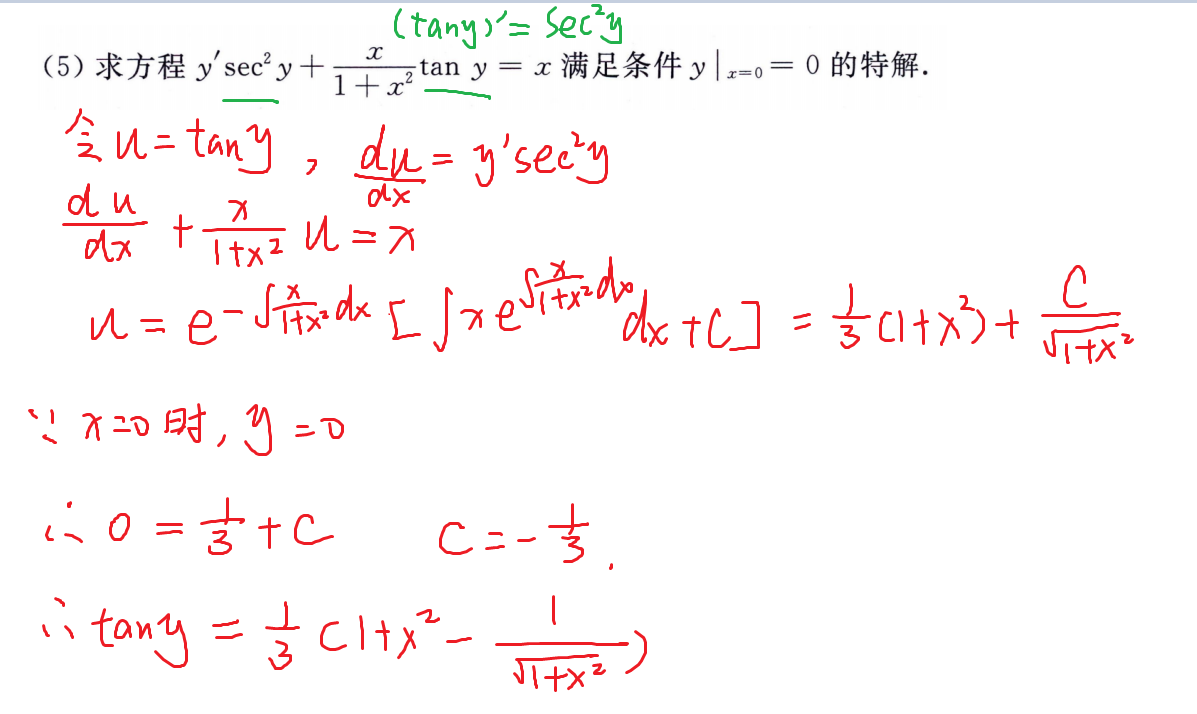 (tany)′= sec²y
(5) 求方程 y′sec² y + x/(1+x²) tan y = x 满足条件 y|ₓ₌₀ = 0 的特解.
令 u = tany , du/dx = y′sec²y
du/dx + x/(1+x²) u = x
u = e^(-∫x/(1+x²)dx) [∫xe^(∫x/(1+x²)dx)dx+C] = 1/3(1+x²)+ C/√(1+x²)
∵ x=0 时, y=0
∴ 0 = 1/3 + C C = -1/3.
∴ tany = 1/3 (1+x² - 1/√(1+x²))